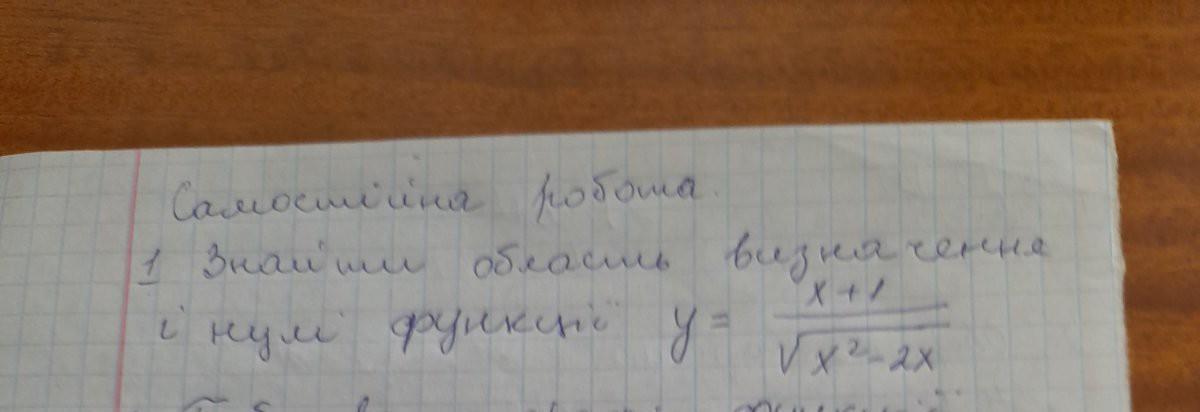 Самостійна робота.
1 Знайти область визначення
і нулі функції y = \frac{x+1}{\sqrt{x^2-2x}}